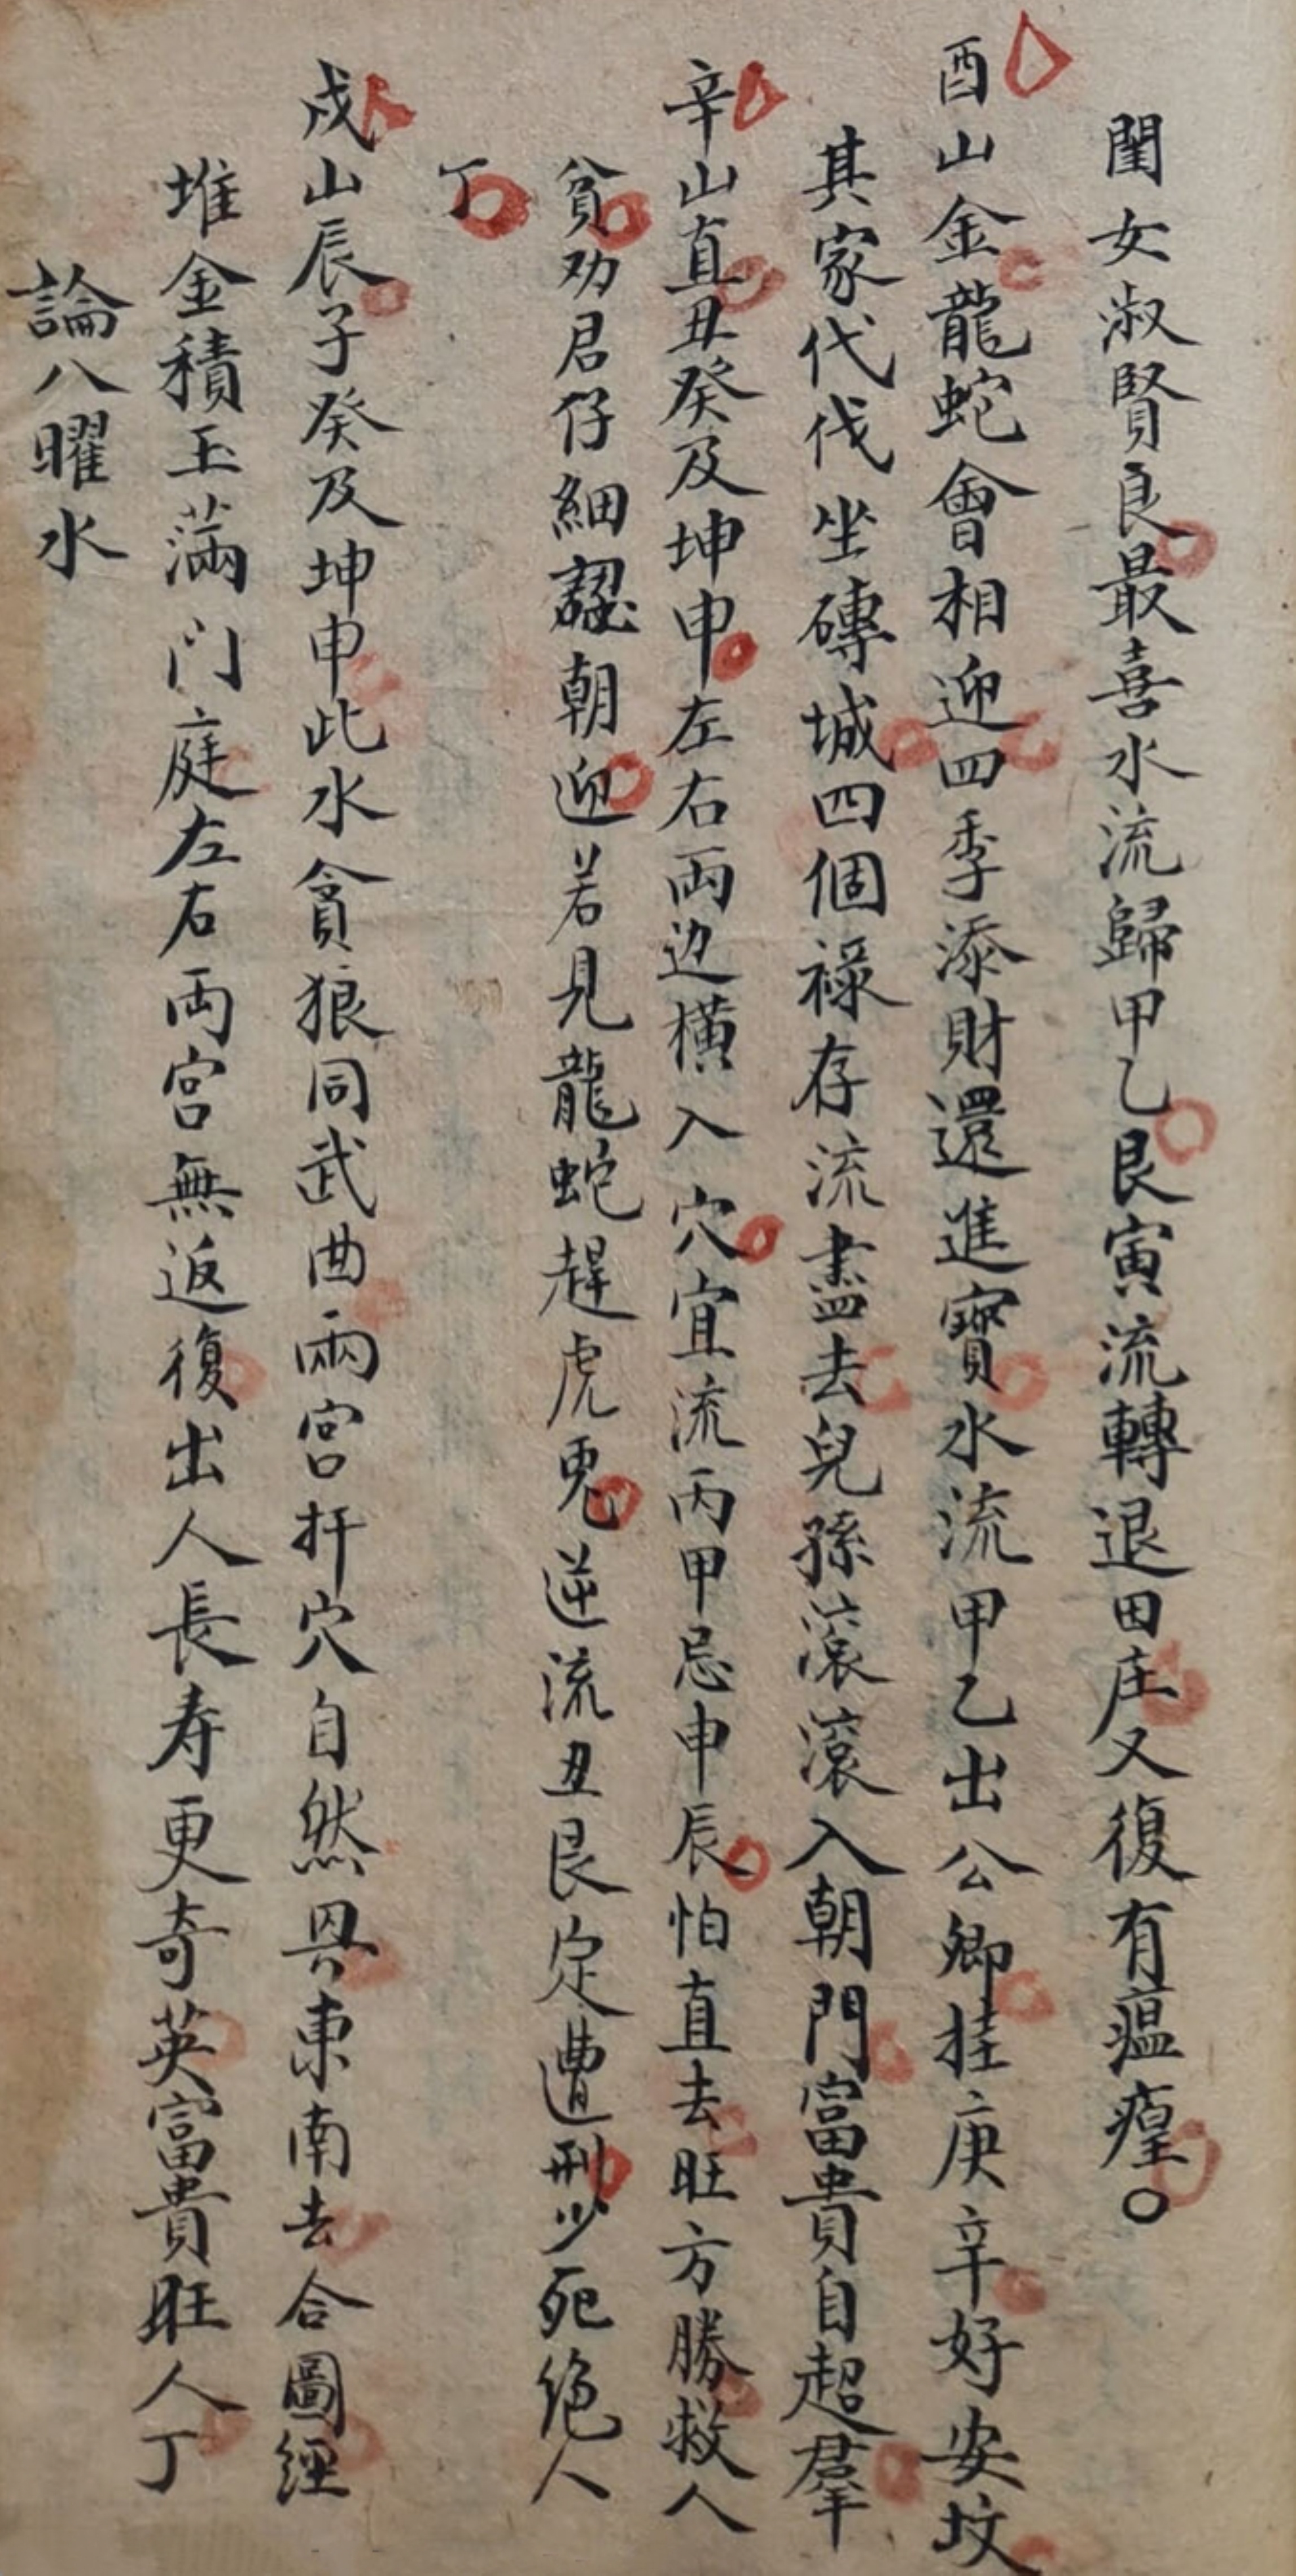 閨女淑賢良最喜水流歸甲乙艮寅流轉退田庄又復有瘟瘴〇
酉山金龍蛇會相迎四季添財還進寳水流甲乙出公卿挂庚辛好安坟
其家代伐坐磚城四個祿存流盡去兒孫滾滾入朝門富貴自超羣
辛山直丑癸及坤申左右両边橫入穴宜流丙甲忌申辰怕直去旺方勝救人
貧劝君仔細認朝迎若見龍蛇趕虎兎逆流丑艮定遭刑少死绝人
丁
戍山辰子癸及坤申此水貪狼同武曲兩宮扦穴自然具東南去合圖經
堆金積玉滿门庭左右両宮無返復出人長寿更奇英富貴旺人丁
論八曜水